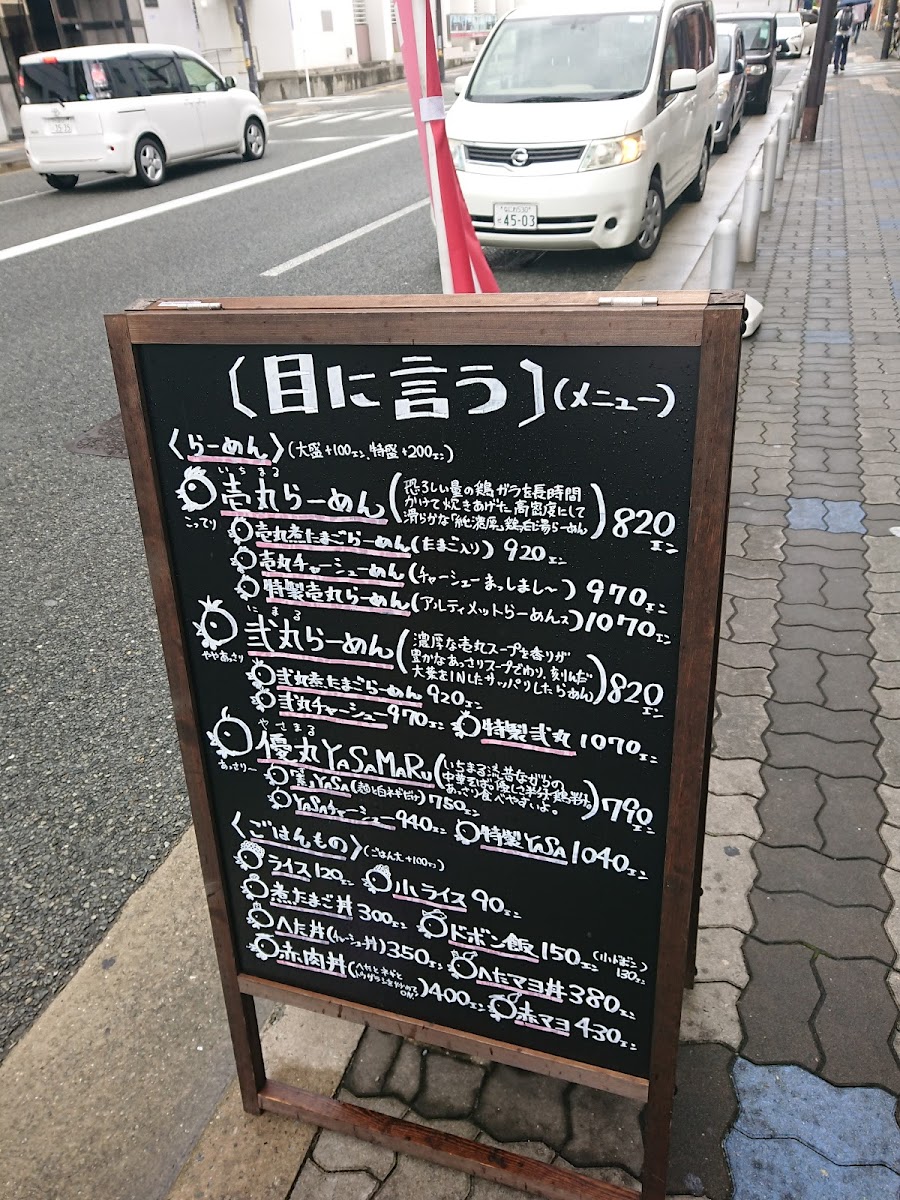 〔目に言う〕(メニュー)
〈らーめん〉(大盛+100エン、特盛+200エン)
いちまる
壱丸らーめん(恐ろしい量の鶏ガラを長時間
かけて炊きあげた高密度にして
滑らかな「純濃厚」鶏白湯らーめん)820エン
こってり
壱丸煮たまごらーめん(たまご入り) 920エン
壱丸チャーシューめん(チャーシューまっしまし〜) 970エン
特製壱丸らーめん(アルティメットらーめんス)1070エン
にまる
弐丸らーめん(濃厚な壱丸スープを香りが
豊かなあっさりスープで割り、刻んだ
大葉をINしたサッパリしたらぁめん)820エン
ややあっさり
弐丸煮たまごらーめん 920エン
弐丸チャーシュー970エン 特製弐丸 1070エン
やさまる
優丸YASAMARU(いちまる流昔ながらの
中華そば。優しさ半分、鶏半分。
あっさり食べやすいよ。)790エン
あっさりー
YASA(麺と白ネギだけ)750エン
YASAチャーシュー940エン 特製YASA 1040エン
〈ごはんもの〉(ごはん大+100エン)
ライス120エン 小ライス 90エン
煮たまご丼 300エン ドボン飯 150エン (小ドボン)130エン
へた丼(チャーシュー丼)350エン へたマヨ丼380エン
赤肉丼 400エン 赤マヨ 430エン
4503